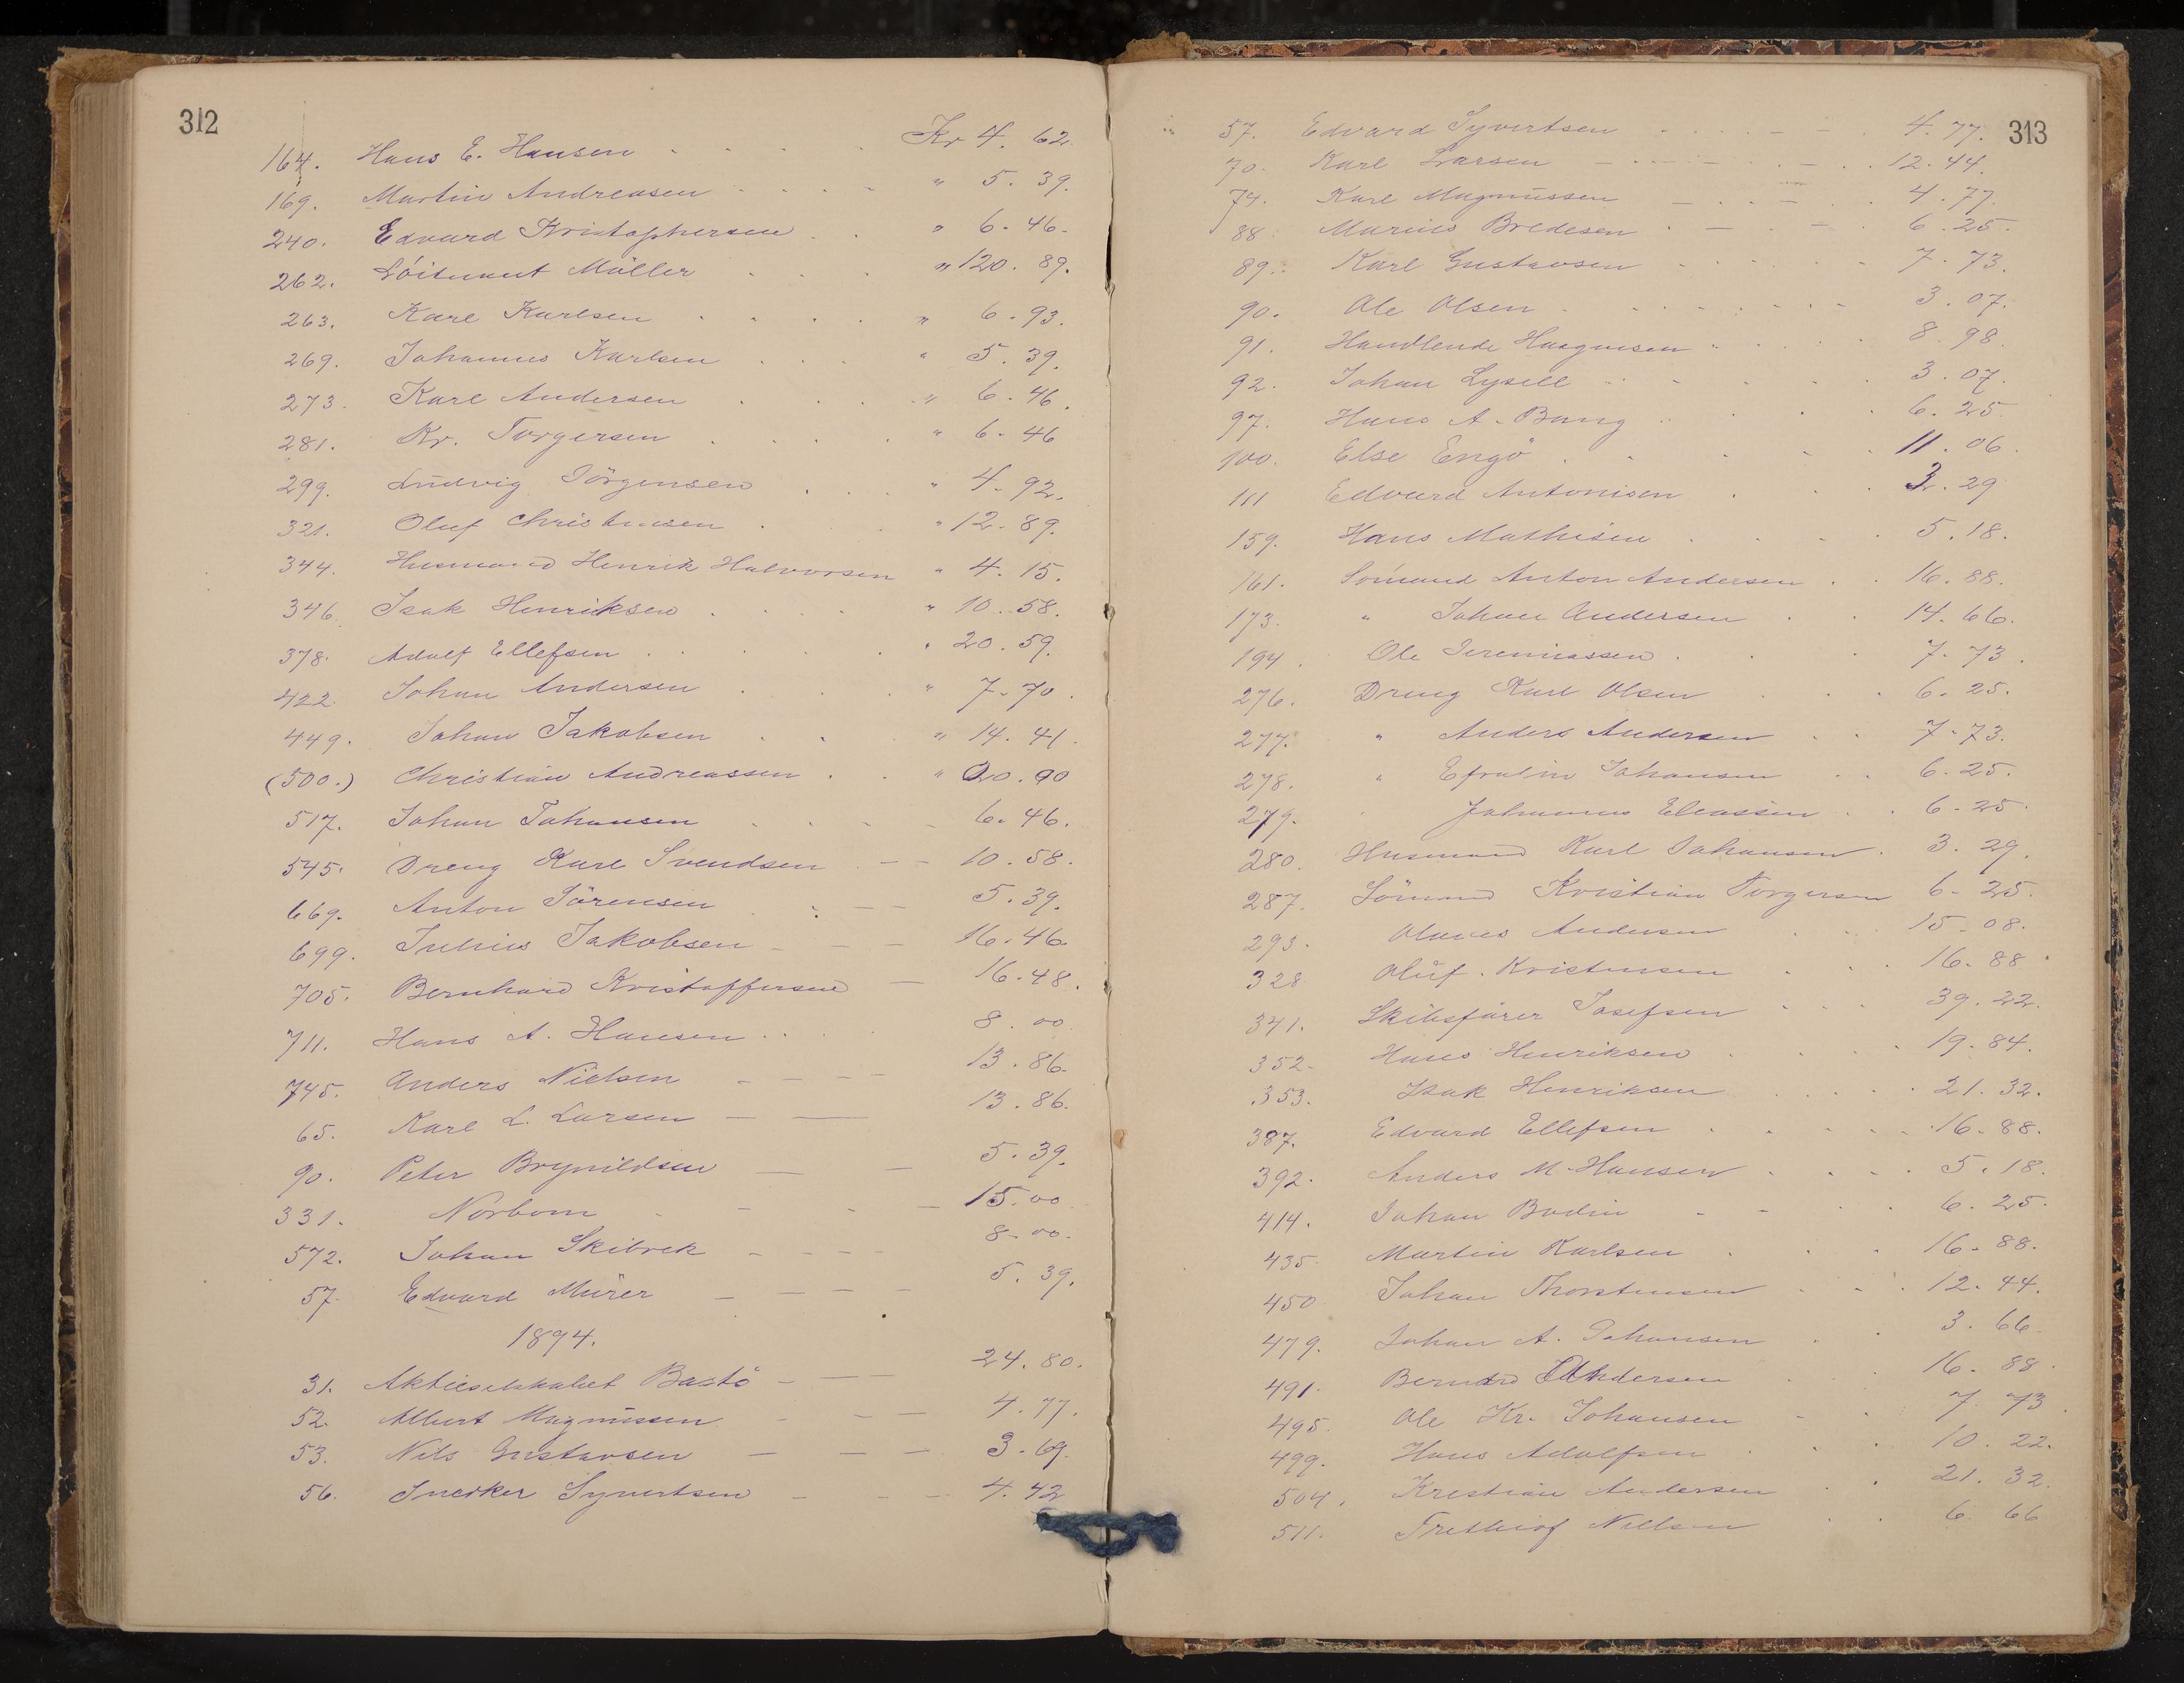 312
164. Hans E. Hansen Kr 4. 62.
169. Martin Andreasen " 5. 39.
240. Edvard Kristophersen " 6. 46.
262. Löitnant Möller " 120. 89.
263. Karl Karlsen " 6. 93.
269. Johannes Karlsen " 5. 39.
273. Karl Andersen " 6. 46.
281. Kr. Torgersen " 6. 46
299. Ludvig Jörgensen " 4. 92.
321. Oluf Christensen " 12. 89.
344. Husmand Henrik Halvorsen " 4. 15.
346. Isak Henriksen " 10. 58.
378. Adolf Ellefsen " 20. 59.
422 Johan Andersen " 7. 70.
449. Johan Jakobsen " 14. 41.
(500.) Christian Andreassen " 20. 00
517. Johan Johansen 6. 46.
545. Dreng Karl Svendsen 10. 58.
669. Anton Sörensen 5. 39.
699. Julius Jakobsen 16. 46
705. Bernhard Kristoffersen 16. 48.
711. Hans A. Hansen 8. 00
745. Anders Nielsen 13. 86.
65. Karl L. Larsen 13. 86.
90. Peter Brynildsen 5. 39.
331. Norbom 15. 00
572. Johan Skibvek 8. 00.
57. Edvard Mürer 5. 39.
1894.
31. Aktieselskabet Bastö 24. 80.
52. Albert Magnussen 4. 77.
53. Nils Gustavsen 3. 69.
56. Snedker Syvertsen 4. 42
313
57. Edvard Syvertsen 4. 77.
70. Karl Larsen 12. 44.
74. Karl Magnussen 4. 77.
88 Marius Bredesen 6. 25.
89. Karl Gustavsen 7. 73.
90. Ole Olsen 3. 07.
91. Handlende Haagensen 8. 98.
92. Johan Lysell 3. 07.
97. Hans A. Bang 6. 25.
100. Else Engö 11. 06.
111 Edvard Antonisen 3. 29
159. Hans Mathisen 5. 18.
161. Sömand Anton Andersen 16. 88.
173. " Johan Andersen 14. 66.
194. Ole Jeremiassen 7. 73.
276. Dreng Karl Olsen 6. 25.
277. " Anders Andersen 7. 73.
278. " Efraim Johansen 6. 25.
279. Johannes Eleassen 6. 25.
280. Husmand Karl Johansen 3. 29.
287. Sömand Kristian Torgersen 6. 25.
293. Olaves Andersen 15. 08.
328 Oluf Kristensen 16. 88.
341. Skibsförer Josefsen 39. 22.
352. Hans Henriksen 19. 84.
353. Isak Henriksen 21. 32.
387. Edvard Ellefsen 16. 88.
392. Anders M. Hansen 5. 18.
414. Johan Bodin 6. 25.
435 Martin Karlsen 16. 88.
450 Johan Thorstensen 12. 44.
479. Johan A. Johansen 3. 66
491. Berntd Andersen 16. 88.
495. Ole Kr. Johansen 7. 73.
499. Hans Adolfsen 10. 22.
504. Kristian Andersen 21. 32.
511. Frithiof Nilsen 6 66